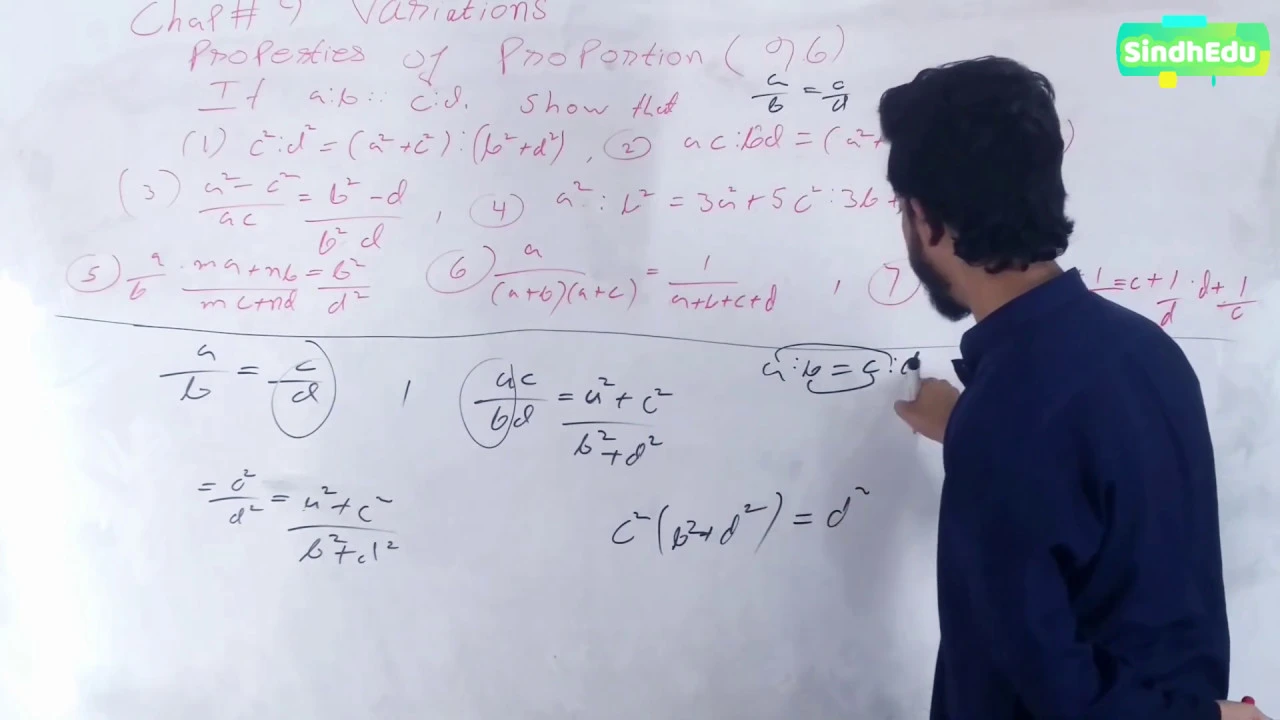 SindhEdu
Chap# 9 Variations
Properties of Proportion (96)
If a:b :: c:d. show that a/b = c/d
(1) c²:d² = (a²+c²):(b²+d²), (2) ac:bd = (a²+ )
(3) (a²-c²)/ac = (b²-d)/(b² d), (4) a²:b² = 3a²+5c²:3b+
(5) a/b · (ma+nb)/(mc+nd) = b²/d² (6) a/((a+b)(a+c)) = 1/(a+b+c+d), (7) 1 = c+1/d · d+1/c
a/b = c/d , ac/bd = (a²+c²)/(b²+d²) a:b = c:d
= c²/d² = (a²+c²)/(b²+d²) c²(b²+d²) = d²